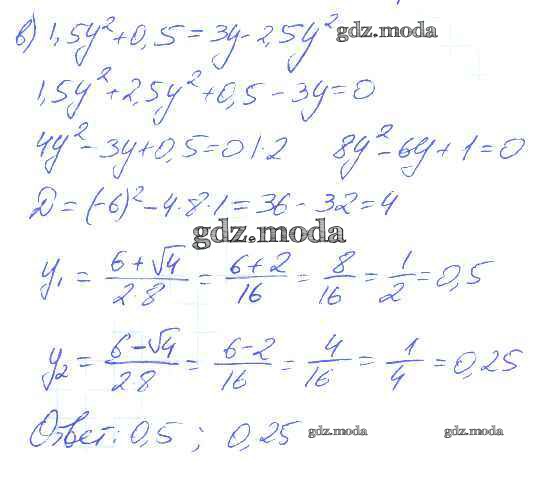 в) 1,5y²+0,5=3y-2,5y² gdz.moda
1,5y²+2,5y²+0,5-3y=0
4y²-3y+0,5=0 |·2 8y²-6y+1=0
D=(-6)²-4·8·1=36-32=4
gdz.moda
y₁ = (6+√4)/(2·8) = (6+2)/16 = 8/16 = 1/2 = 0,5
y₂ = (6-√4)/(2·8) = (6-2)/16 = 4/16 = 1/4 = 0,25
Ответ: 0,5 ; 0,25 gdz.moda gdz.moda